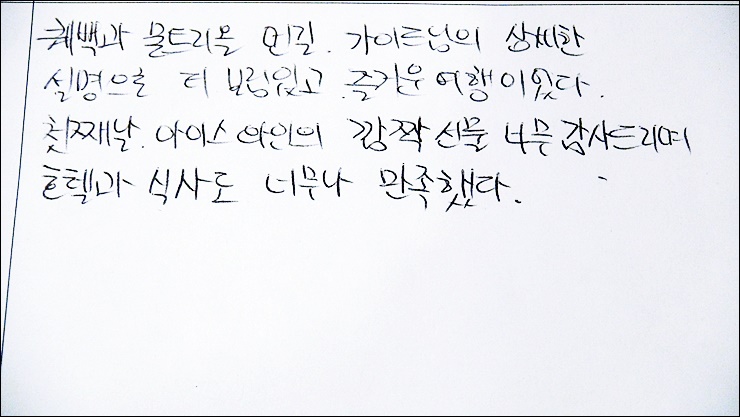 퀘백과 몽트리올 먼길. 가이드님의 상세한
설명으로 더 보람있고 즐거운 여행이었다.
첫째날. 아이스와인의 깜짝 선물 너무 감사드리며
호텔과 식사도 너무나 만족했다.